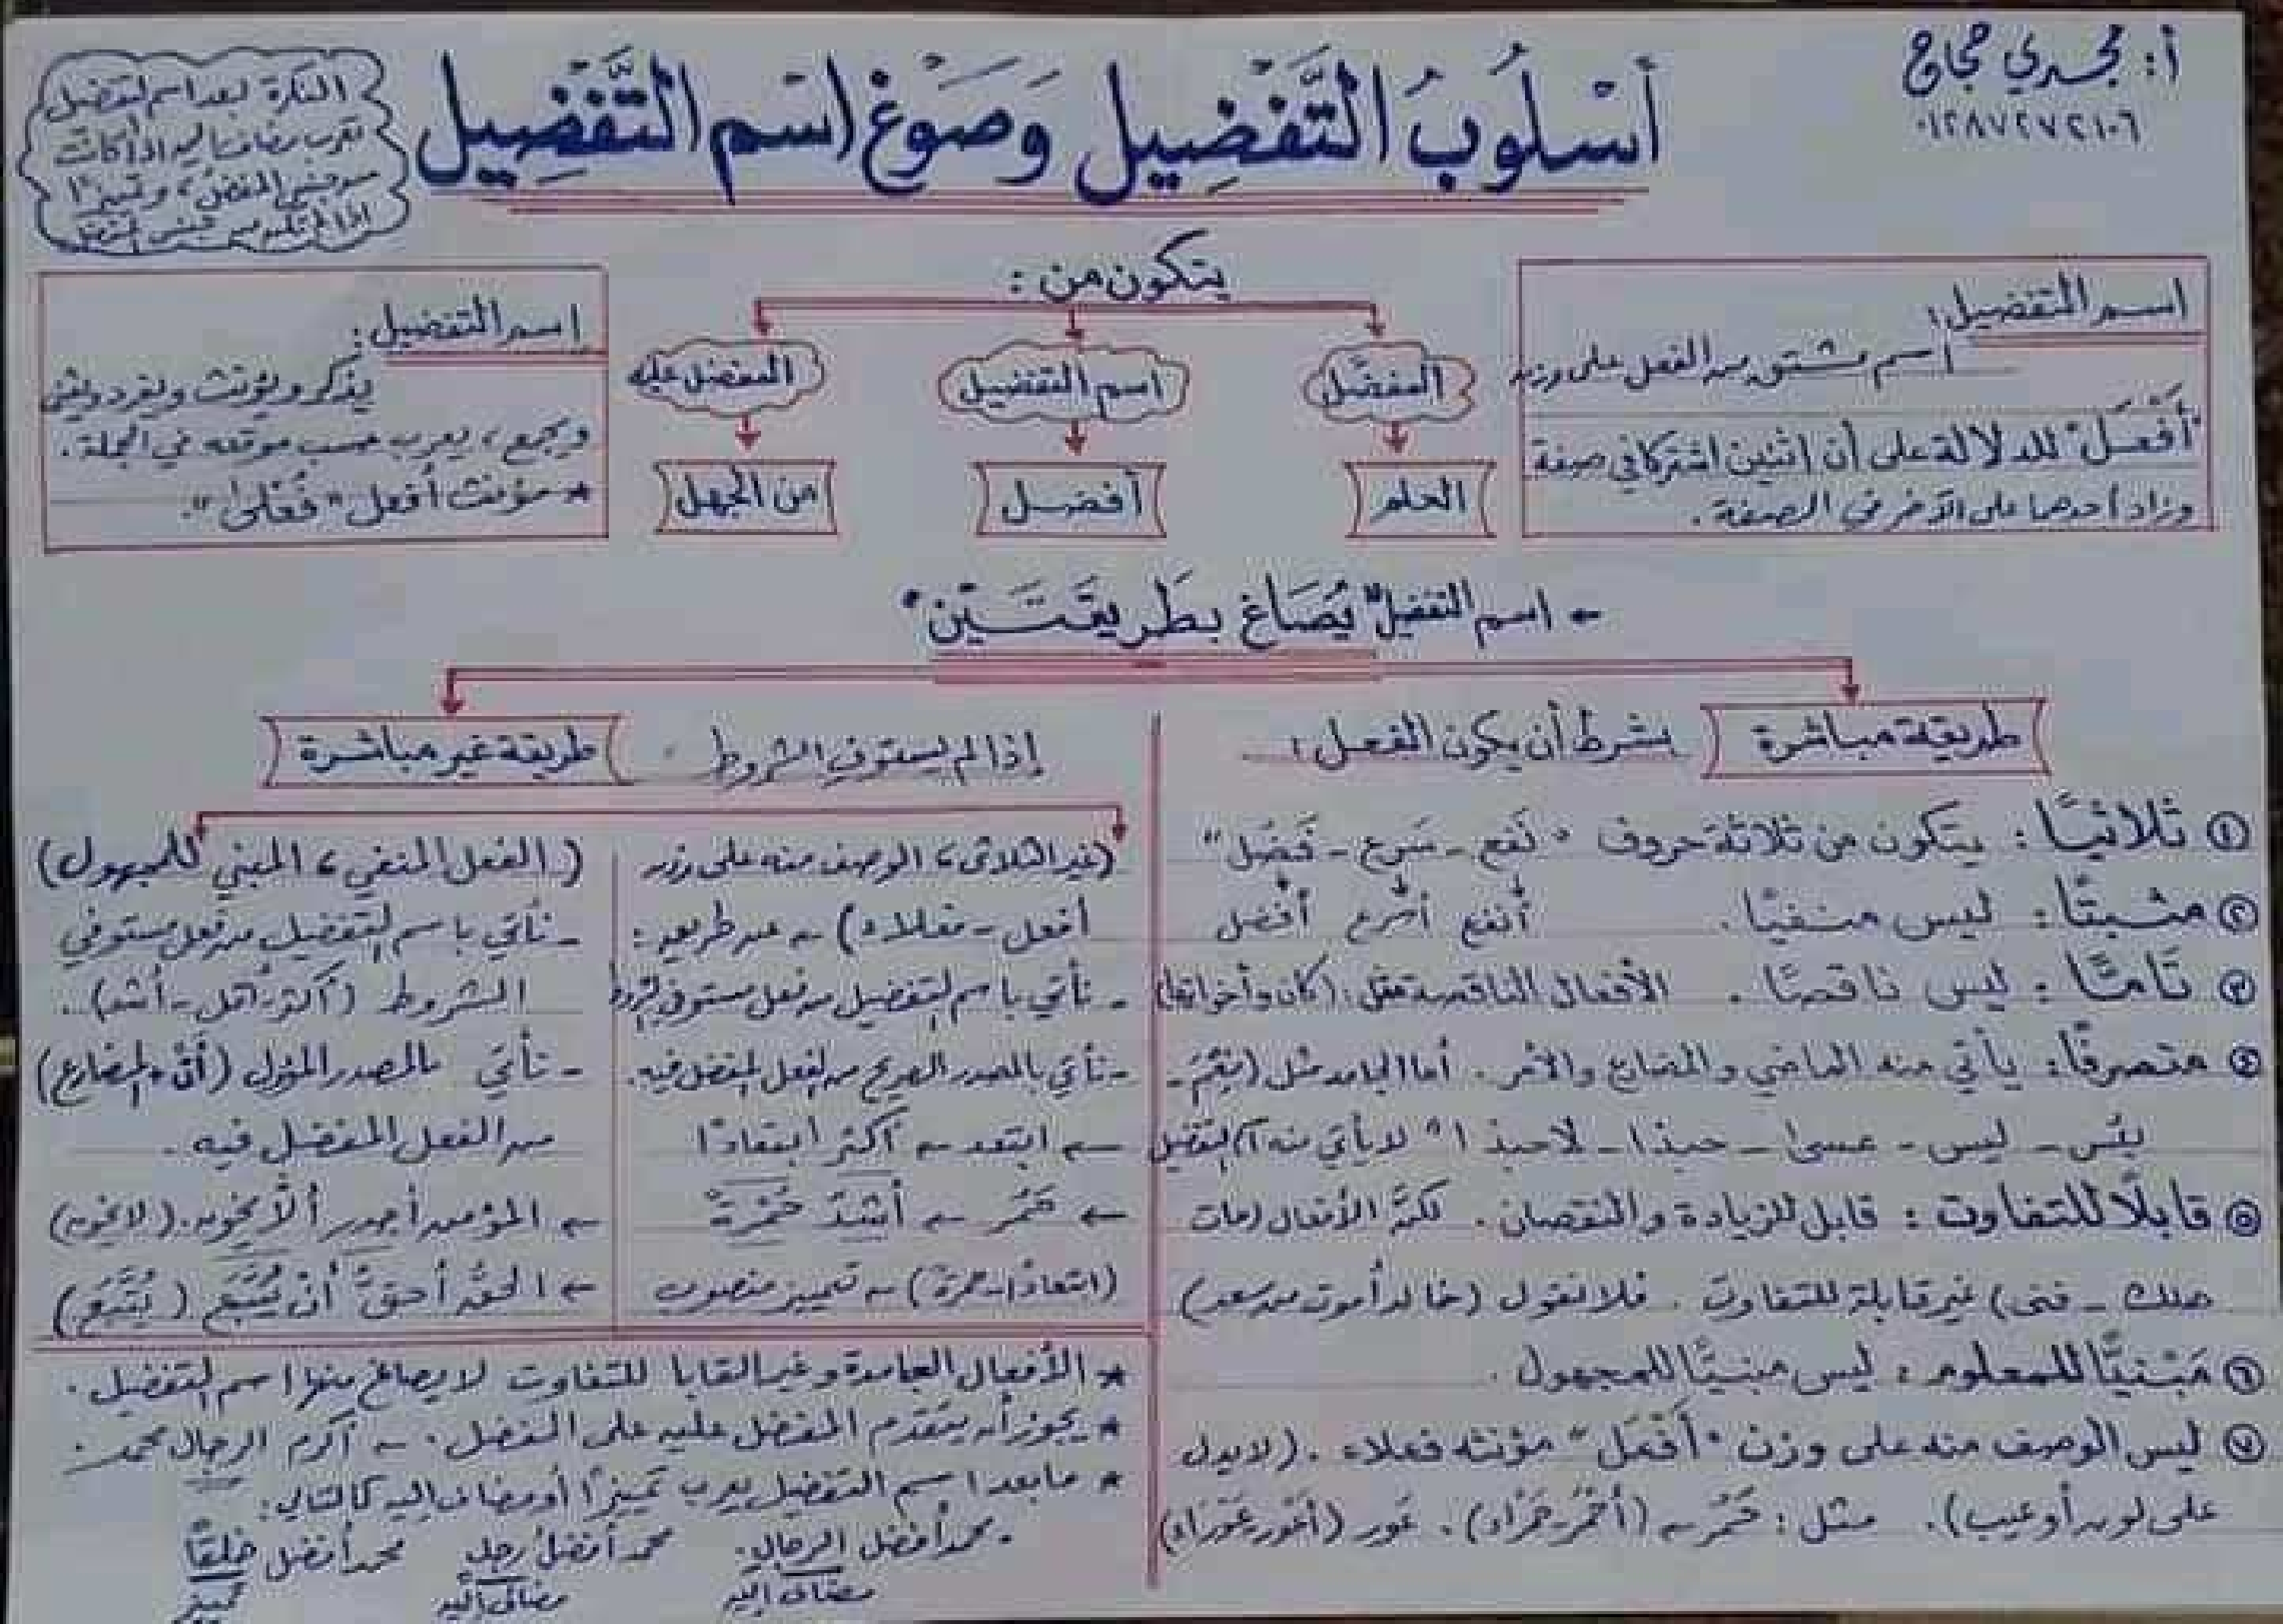 أ: مجدي حجاج
٠١٢٨٧٢٧٢١٠٦
أسْلُوبُ التَّفْضِيل وَصَوْغ اسْم التَّفْضِيل
النكرة بعد اسم التفضيل
تعرب مضافا إليه إذا كانت
من جنس المفضل، وتمييزًا
إذا لم تكن من جنس المفضل
يتكون من :
المفضَّل
اسم التفضيل
المفضل عليه
العلم
أفضل
من الجهل
اسم التفضيل:
اسم مشتق من الفعل على وزن
"أَفْعَل" للدلالة على أن اثنين اشتركا في صفة
وزاد أحدهما على الآخر في الصفة .
اسم التفضيل:
يذكر ويؤنث ويفرد ويثنى
ويجمع، يعرب حسب موقعه في الجملة .
* مؤنث أفعل "فُعْلى".
- اسم التفضيل "يُصَاغ بطَريقَتَيْن"
طريقة مباشرة
بشرط أن يكون الفعل :
① ثلاثيًا : يتكون من ثلاثة حروف "نَفع - سَرع - فَضُل"
أنفع أسرع أفضل
② مثبتًا : ليس منفيًا .
③ تَامًّا : ليس ناقصًا . الأفعال الناقصة مثل: (كان وأخواتها)
④ متصرفًا: يأتي منه الماضي والمضارع والأمر . أما الجامد مثل (نِعْمَ -
بئس - ليس - عسى - حبذا - لاحبذا" لا يأتي منه التفضيل
⑤ قابلًا للتفاوت : قابل للزيادة والنقصان . لكنَّ الأفعال (مات
هلك - فنى) غير قابلة للتفاوت . فلا نقول (خالد أموت من سعد)
⑥ مَبْنيًّا للمعلوم : ليس مبنيًّا للمجهول .
⑦ ليس الوصف منه على وزن "أفْعَل" مؤنثه فعلاء . (لا يدل
على لون أو عيب). مثل : حَمُر ← (أحْمَر - حَمْراء). عَور (أعْور - عَوْراء)
طريقة غير مباشرة
إذا لم يستوفِ الشروط
(غير الثلاثي، الوصف منه على وزن
أفعل - فعلاء) ← عن طريق :
- نأتي باسم التفضيل من فعل مستوفي الشروط
- نأتي بالمصدر الصريح من الفعل المفضل فيه.
← ابتعد ← أكثر ابتعادًا
← حَمُر ← أشدّ حُمْرة
(ابتعادًا - حمرة) ← تمييز منصوب
(الفعل المنفي، المبني للمجهول)
- نأتي باسم التفضيل من فعل مستوفي
الشروط (أكثر - أقل - أشد) .
- نأتي بالمصدر المؤول (أنْ + المضارع)
من الفعل المفضل فيه .
← المؤمن أجدر ألَّا يخون . (لا يخون)
← الحق أحقُّ أنْ يُتَّبَع (يُتَّبَع)
* الأفعال الجامدة وغير القابلة للتفاوت لا يصاغ منها اسم التفضيل .
* يجوز أن يتقدم المفضل عليه على المفضل . ← أكرم الرجال محمد .
* ما بعد اسم التفضيل يعرب تمييزًا أو مضاف إليه كالتالي :
- محمد أفضل الرجال . محمد أفضل رجل محمد أفضل خلقًا
مضاف إليه مضاف إليه تمييز